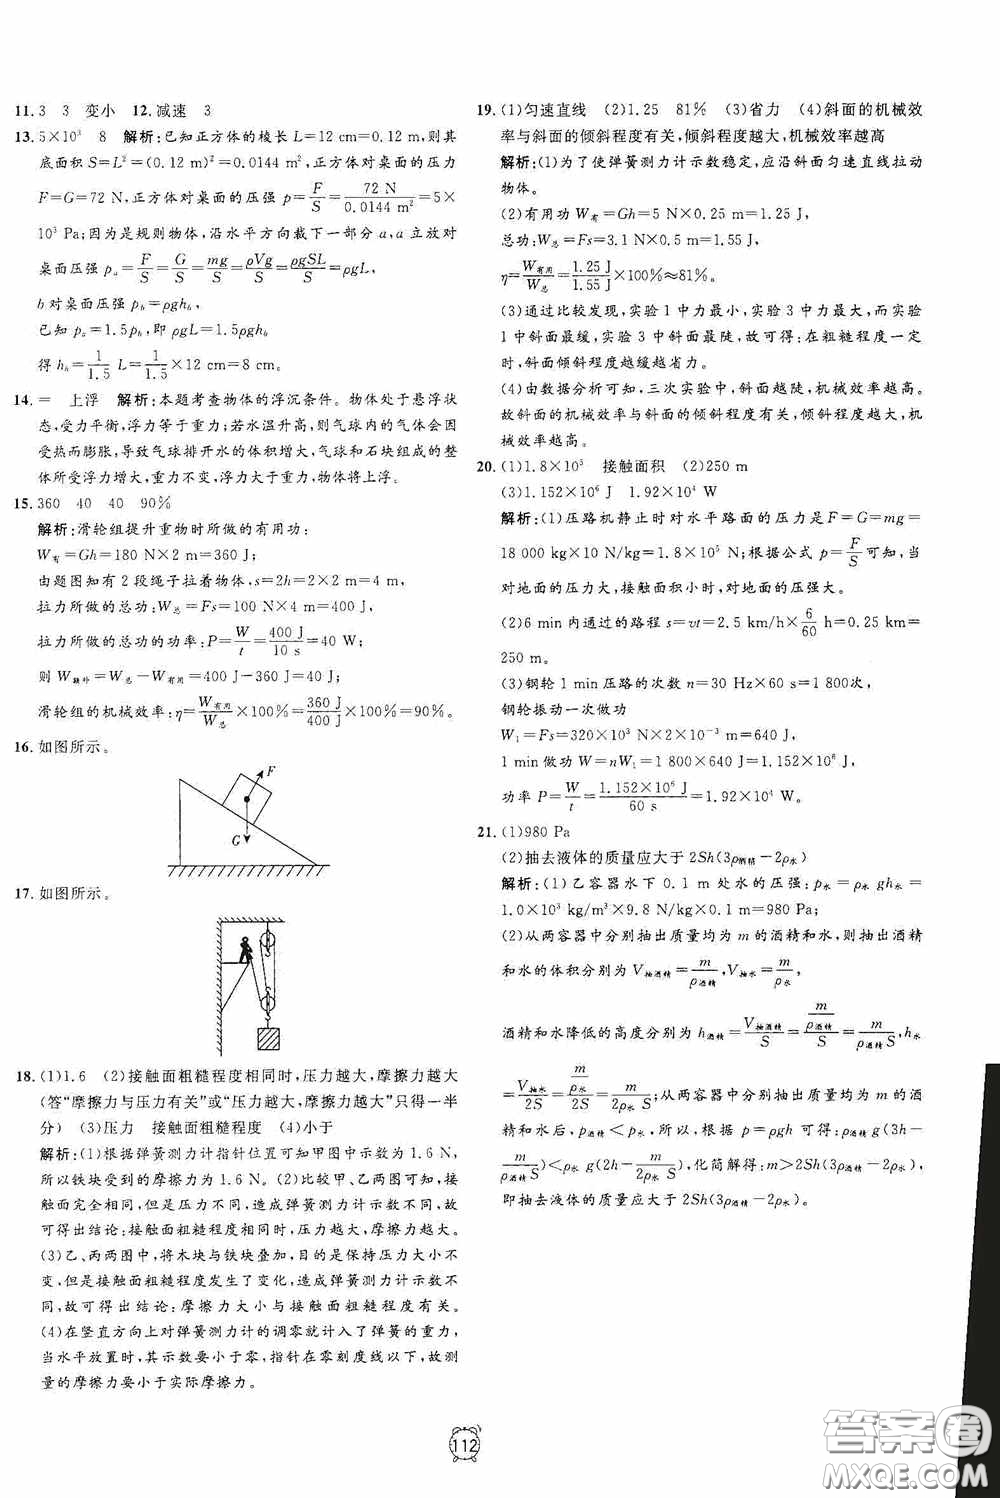 11.3　3　变小　12.减速　3
13.5×10³　8　解析:已知正方体的棱长L=12 cm=0.12 m,则其
底面积S=L²=(0.12 m)²=0.0144 m²,正方体对桌面的压力
F=G=72 N,正方体对桌面的压强p=F/S=72 N/0.0144 m²=5×
10³ Pa;因为是规则物体,沿水平方向截下一部分a,a立放对
桌面压强pₐ=F/S=G/S=mg/S=ρVg/S=ρgSL/S=ρgL,
b对桌面压强p_b=ρgh_b,
已知pₐ=1.5p_b,即ρgL=1.5ρgh_b
得h_b=1/1.5 L=1/1.5×12 cm=8 cm。
14.=　上浮　解析:本题考查物体的浮沉条件。物体处于悬浮状
态,受力平衡,浮力等于重力;若水温升高,则气球内的气体会因
受热而膨胀,导致气球排开水的体积增大,气球和石块组成的
整体所受浮力增大,重力不变,浮力大于重力,物体将上浮。
15.360　40　40　90%
解析:滑轮组提升重物时所做的有用功:
W有=Gh=180 N×2 m=360 J;
由题图知有2段绳子拉着物体,s=2h=2×2 m=4 m,
拉力所做的总功:W总=Fs=100 N×4 m=400 J,
拉力所做的总功的功率:P=W/t=400 J/10 s=40 W;
则W额外=W总-W有用=400 J-360 J=40 J;
滑轮组的机械效率:η=W有用/W总×100%=360 J/400 J×100%=90%。
16.如图所示。
F
G
17.如图所示。
18.(1)1.6　(2)接触面粗糙程度相同时,压力越大,摩擦力越大
(答“摩擦力与压力有关”或“压力越大,摩擦力越大”只得一半
分)　(3)压力　接触面粗糙程度　(4)小于
解析:(1)根据弹簧测力计指针位置可知甲图中示数为1.6 N,
所以铁块受到的摩擦力为1.6 N。(2)比较甲、乙两图可知,接触
面完全相同,但是压力不同,造成弹簧测力计示数不同,故可得
出结论:接触面粗糙程度相同时,压力越大,摩擦力越大。
(3)乙、丙两图中,将木块与铁块叠加,目的是保持压力大小不
变,但是接触面粗糙程度发生了变化,造成弹簧测力计示数不
同,故可得出结论:摩擦力大小与接触面粗糙程度有关。
(4)在竖直方向上对弹簧测力计的调零就计入了弹簧的重力,
当水平放置时,其示数要小于零,指针在零刻度线以下,故测
量的摩擦力要小于实际摩擦力。
19.(1)匀速直线　(2)1.25　81%　(3)省力　(4)斜面的机械效
率与斜面的倾斜程度有关,倾斜程度越大,机械效率越高
解析:(1)为了使弹簧测力计示数稳定,应沿斜面匀速直线拉动
物体。
(2)有用功W有=Gh=5 N×0.25 m=1.25 J,
总功:W总=Fs=3.1 N×0.5 m=1.55 J,
η=W有用/W总=1.25 J/1.55 J×100%≈81%。
(3)通过比较发现,实验1中力最小,实验3中力最大,而实验
1中斜面最缓,实验3中斜面最陡,故可得:在粗糙程度一定
时,斜面倾斜程度越缓越省力。
(4)由数据分析可知,三次实验中,斜面越陡,机械效率越高。
故斜面的机械效率与斜面的倾斜程度有关,倾斜程度越大,机
械效率越高。
20.(1)1.8×10⁵　接触面积　(2)250 m
(3)1.152×10⁶ J　1.92×10⁴ W
解析:(1)压路机静止时对水平路面的压力是F=G=mg=
18 000 kg×10 N/kg=1.8×10⁵ N;根据公式p=F/S可知,当
对地面的压力大,接触面积小时,对地面的压强大。
(2)6 min内通过的路程s=vt=2.5 km/h×6/60 h=0.25 km=
250 m。
(3)钢轮1 min压路的次数n=30 Hz×60 s=1 800次,
钢轮振动一次做功
W₁=Fs=320×10³ N×2×10⁻³ m=640 J,
1 min做功W=nW₁=1 800×640 J=1.152×10⁶ J,
功率P=W/t=1.152×10⁶ J/60 s=1.92×10⁴ W。
21.(1)980 Pa
(2)抽去液体的质量应大于2Sh(3ρ酒精-2ρ水)
解析:(1)乙容器水下0.1 m处水的压强:p水=ρ水 gh水=
1.0×10³ kg/m³×9.8 N/kg×0.1 m=980 Pa;
(2)从两容器中分别抽出质量均为m的酒精和水,则抽出酒精
和水的体积分别为V抽酒精=m/ρ酒精,V抽水=m/ρ水,
酒精和水降低的高度分别为h酒精=V抽酒精/S=(m/ρ酒精)/S=m/(ρ酒精S),h水
=V抽水/2S=(m/ρ水)/2S=m/(2ρ水S);从两容器中分别抽出质量均为m的酒
精和水后,p酒精<p水,所以,根据p=ρgh可得:ρ酒精g(3h-
m/(ρ酒精S))<ρ水g(2h-m/(2ρ水S)),化简解得:m>2Sh(3ρ酒精-2ρ水),
即抽去液体的质量应大于2Sh(3ρ酒精-2ρ水)。
112
答案卷
MXQE.COM